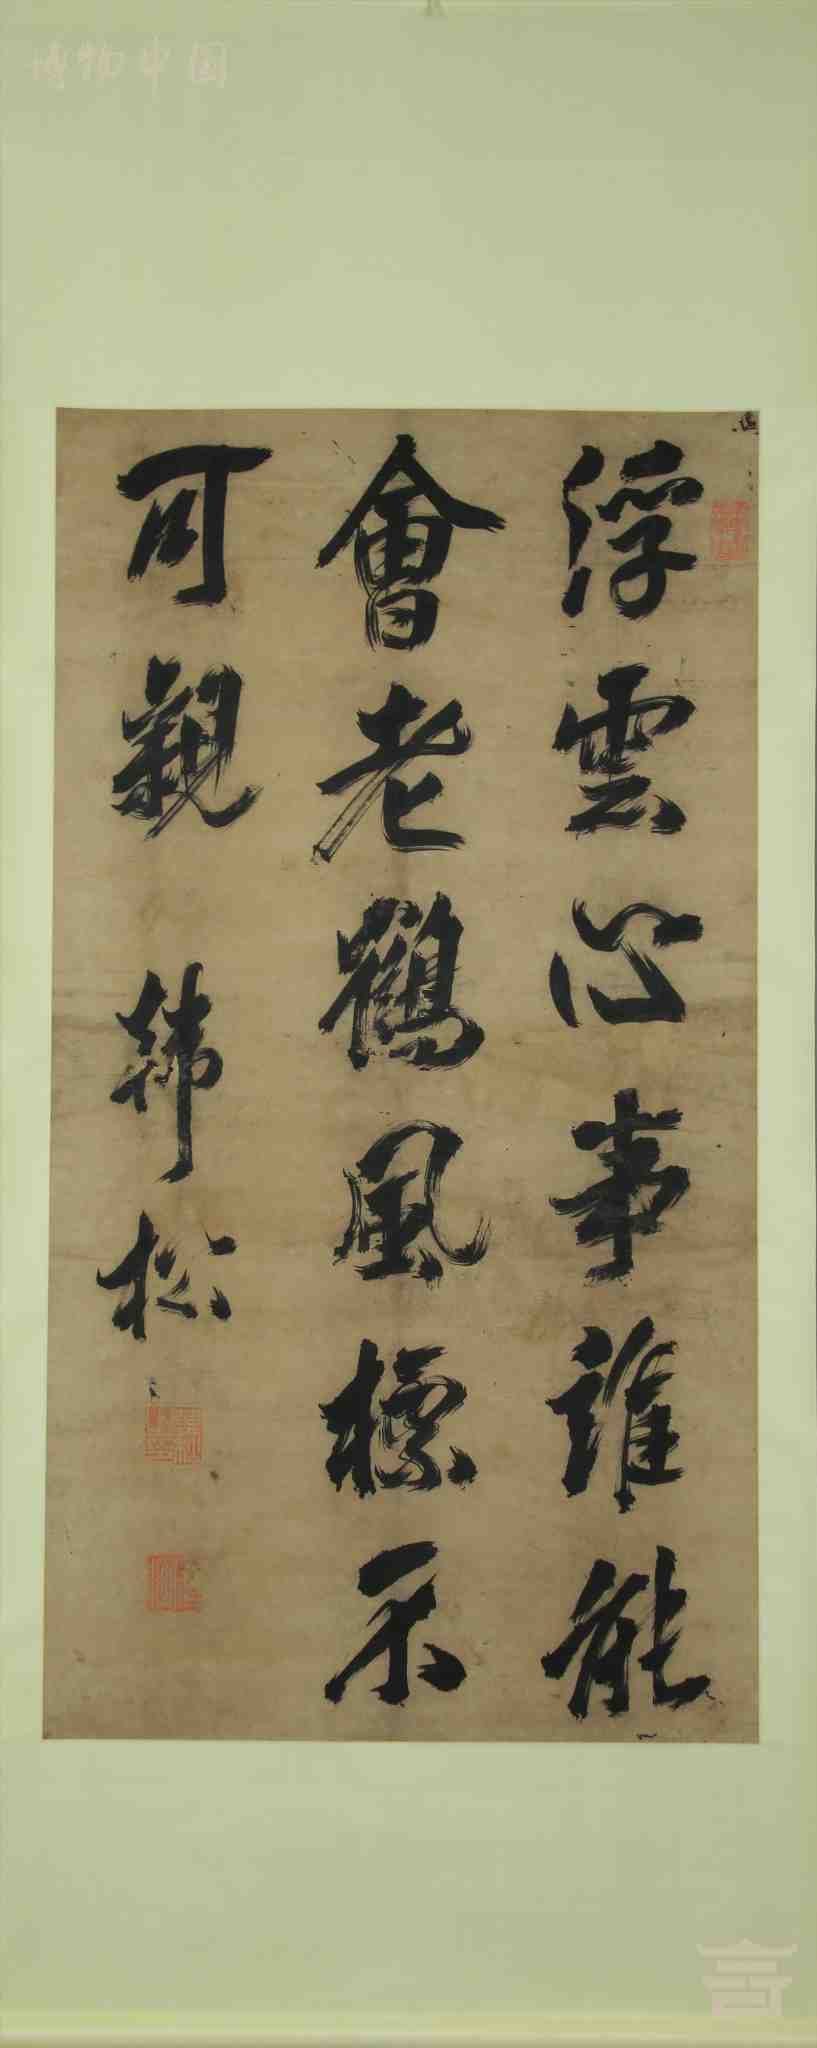 浮雲心事誰能
會老鶴風標不
可親 韩松
博物中国